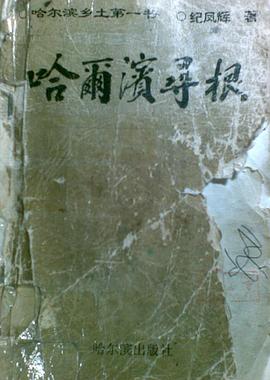 ○哈尔滨乡土第一书 ○纪凤辉 著
哈爾濱尋根
哈尔滨出版社